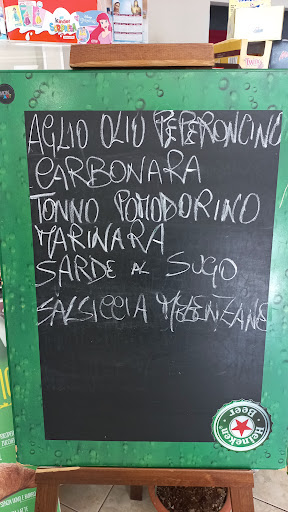 Kinder
AGLIO OLIO PEPERONCINO
CARBONARA
TONNO POMODORINO
MARINARA
SARDE AL SUGO
SALSICCIA MELENZANE
Heineken
Beer